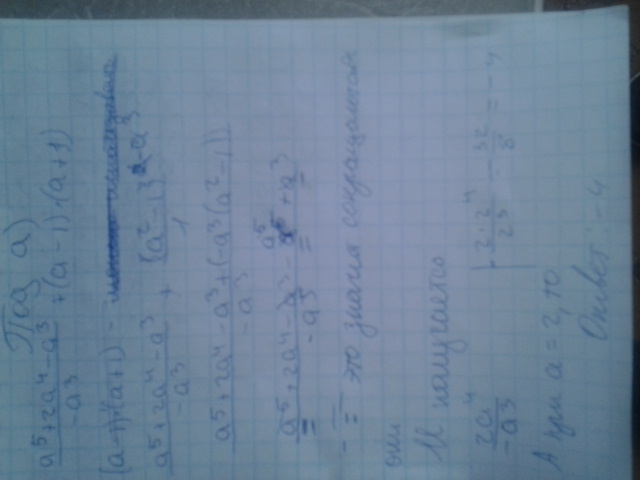 Под а)
(a⁵+2a⁴-a³)/(-a³) + (a-1)·(a+1)
(a-1)·(a+1) -
(a⁵+2a⁴-a³)/(-a³) + (a²-1)·-a³/1
(a⁵+2a⁴-a³+(-a³(a²-1)))/(-a³)
(a⁵+2a⁴-a³-a⁵+a³)/(-a³)
- = это значит сокращаются
они
И получается
2a⁴/(-a³) | 2·2⁴/2³ - 32/8 = -4
А при a = 2, то
Ответ: -4